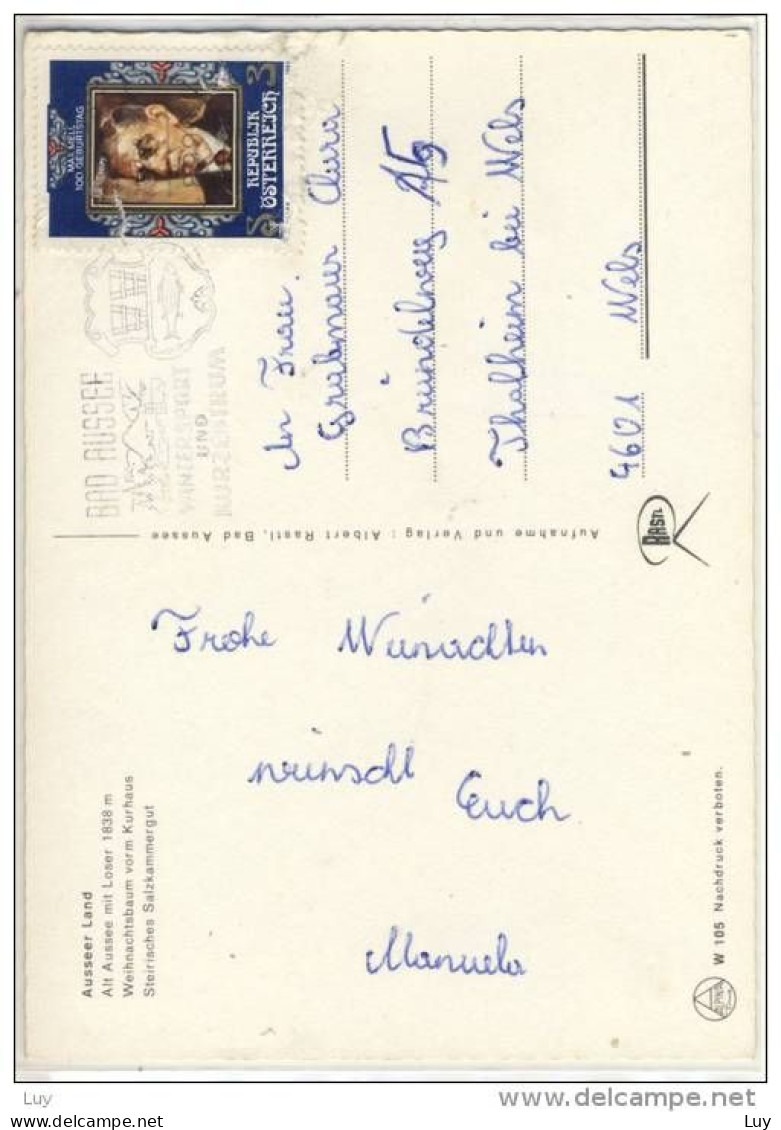 Ausseer Land
Alt Aussee mit Loser 1838 m
Weihnachtsbaum vorm Kurhaus
Steirisches Salzkammergut
Frohe Weinachten
wünscht
Euch
Manuela
W 105 Nachdruck verboten.
ALPINA
Aufnahme und Verlag: Albert Rastl, Bad Aussee
RASTL
BAD AUSSEE
WINTERSPORT
UND
KURZENTRUM
MAX MELL
100. GEBURTSTAG
REPUBLIK
ÖSTERREICH
S 3
An Frau
Grabmaur Clara
Bründelweg 15
Thalheim bei Wels
4601 Wels
Luy
Luy
Luy
delcampe.net